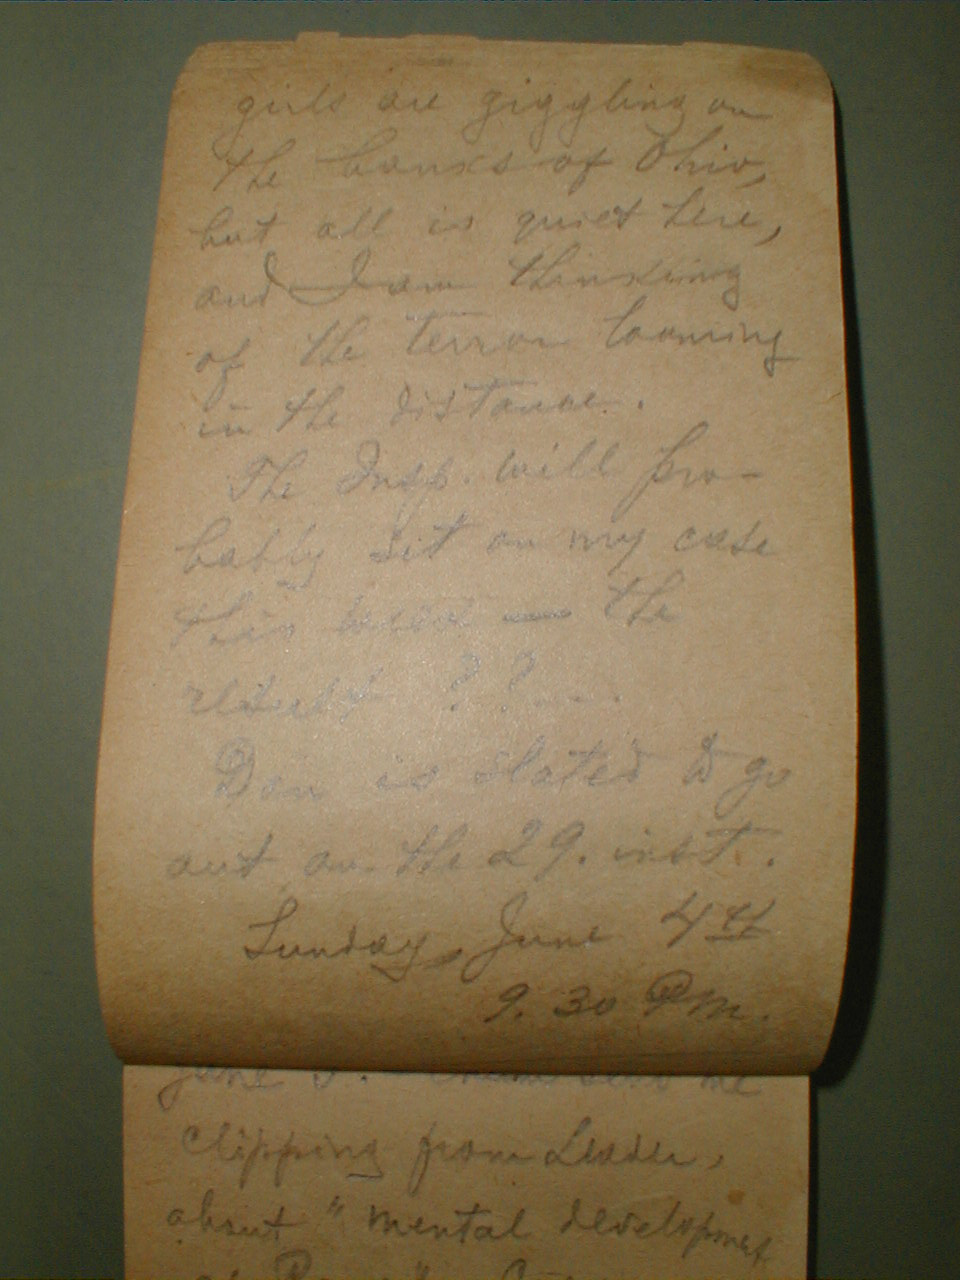 girls are giggling on
the banks of Ohio,
but all is quiet here,
and I am thinking
of the terror looming
in the distance.
The Insp. will pro-
bably sit on my case
this week — the
result ??—.
Dan is slated to go
out on the 29. inst.
Sunday, June 4th
9.30 PM.
June 5. send me
clipping from Leader,
about "mental development